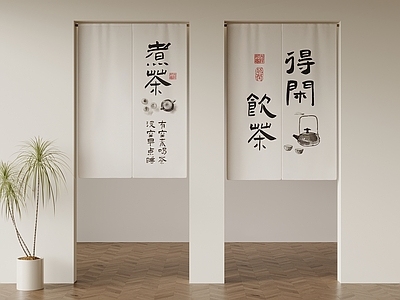 煮茶
有空来喝茶
没空早点睡
得閑
飲茶